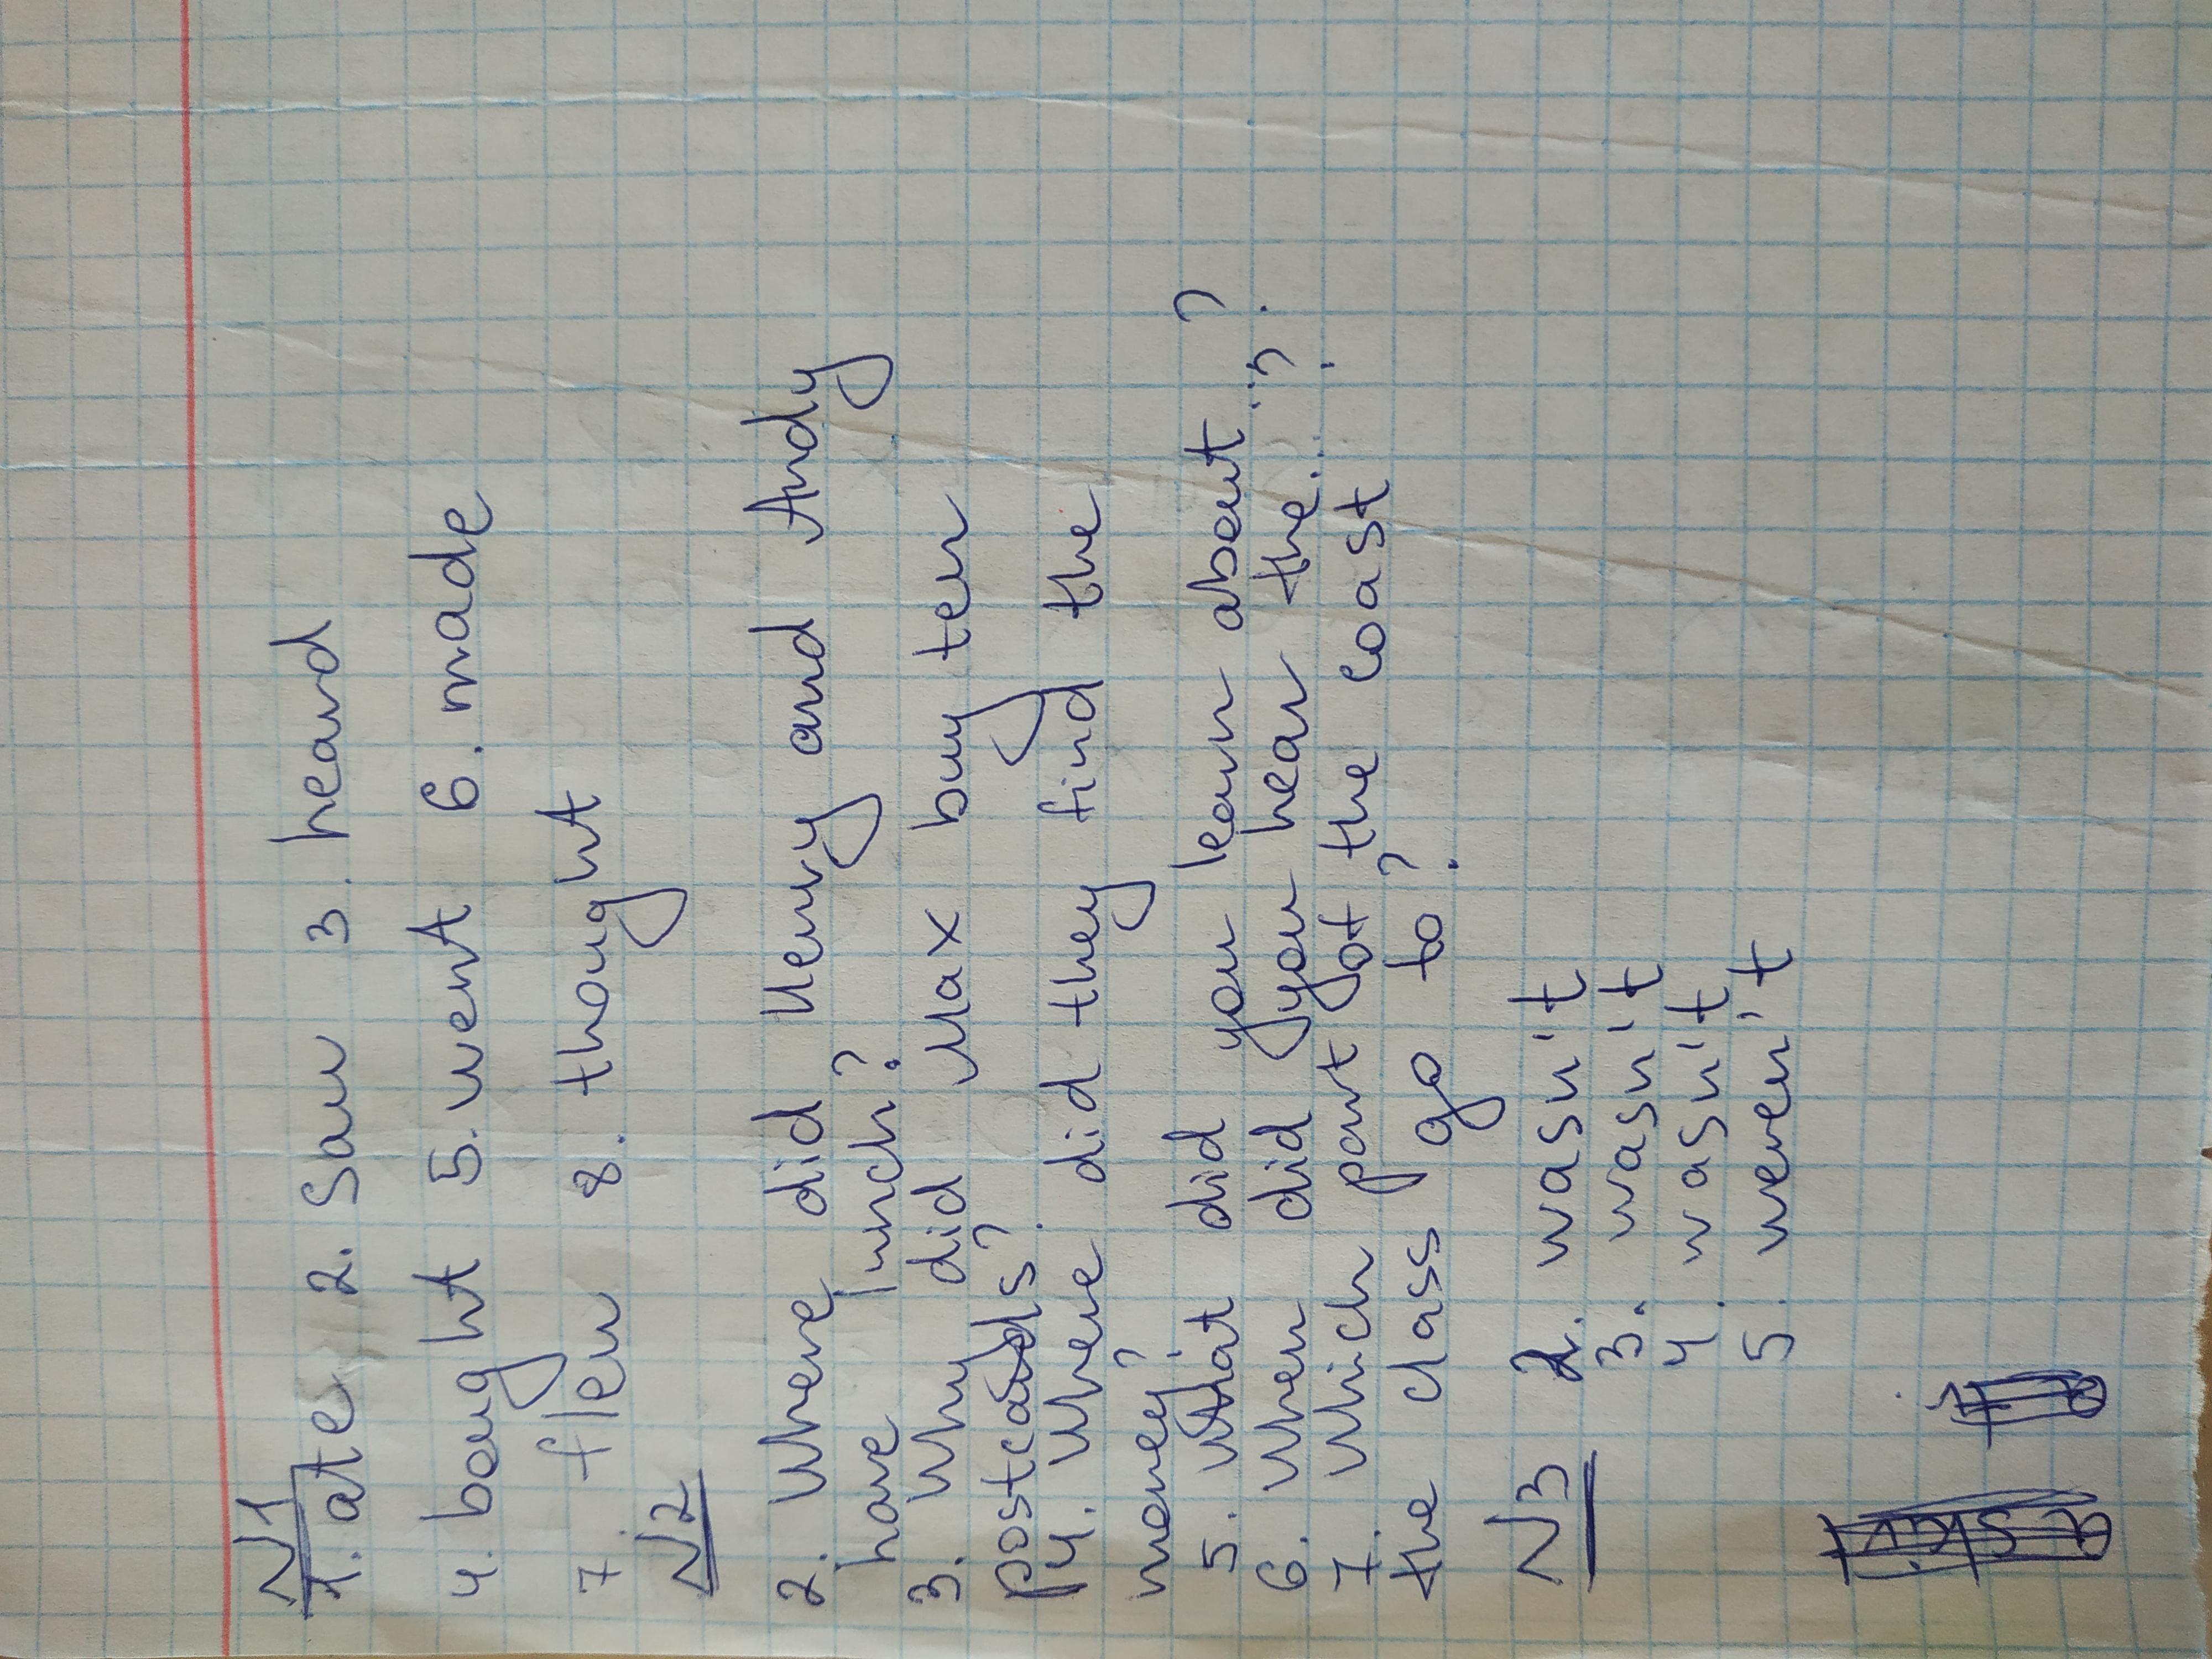 N1
1. ate 2. saw 3. heard
4. bought 5. went 6. made
7. flew 8. thought
N2
2. Where did Henry and Andy
have lunch?
3. Why did Max buy ten
postcards?
4. Where did they find the
money?
5. What did you learn about...?
6. When did you hear the...?
7. Which part of the coast
the class go to?
N3
2. wasn't
3. wasn't
4. wasn't
5. weren't